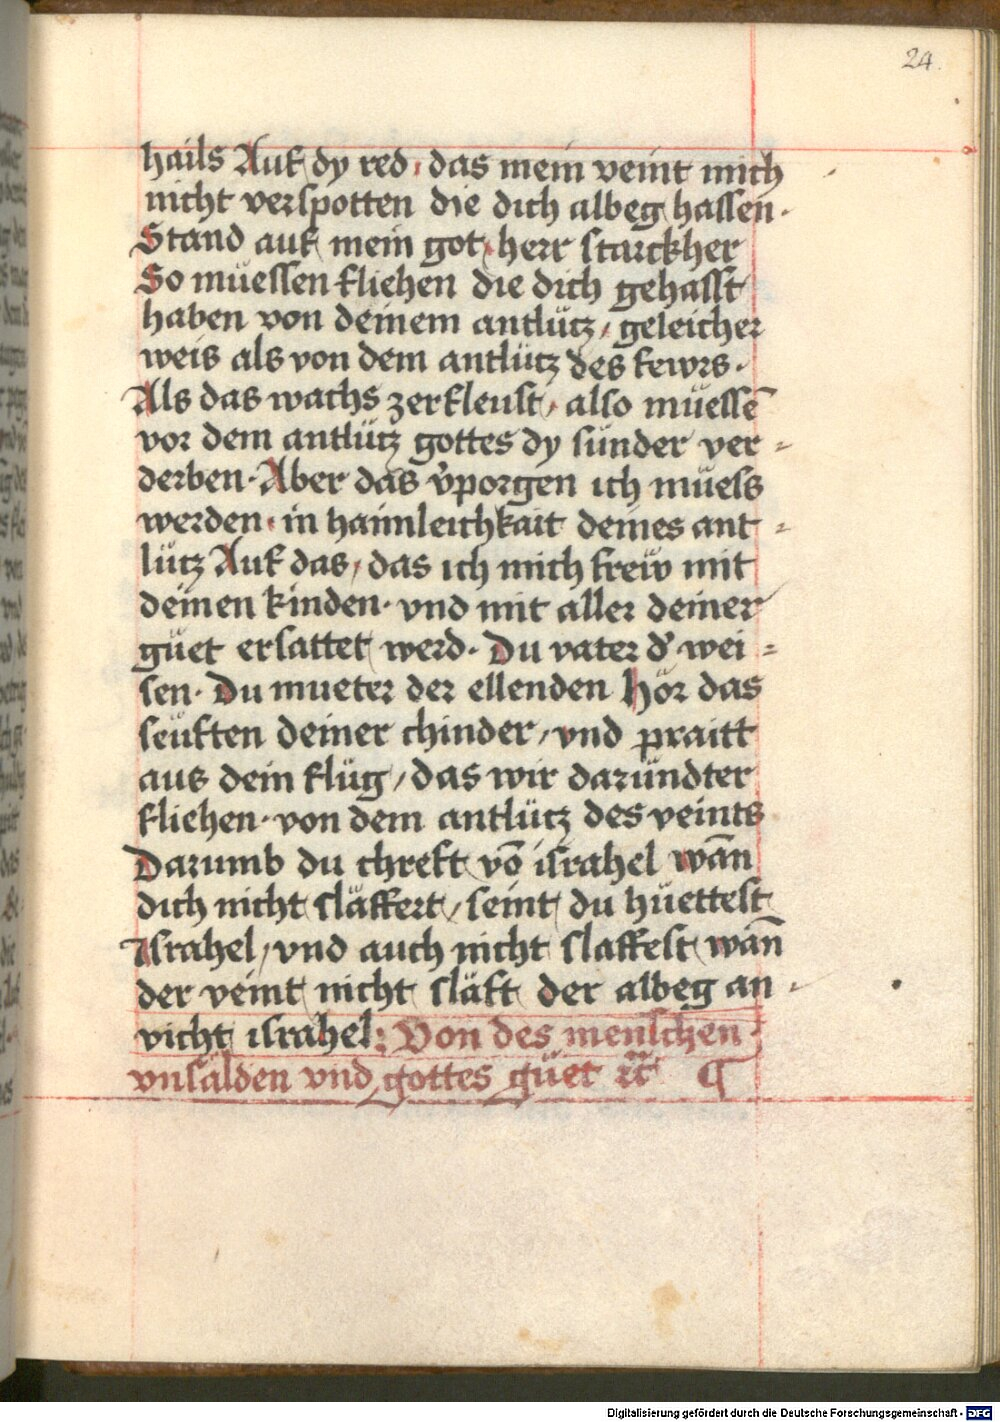 24.
hails Auf dy red, das mein veint mich
nicht verspotten die dich albeg hassen.
Stand auf mein got, herr starckher
So müessen fliehen die dich gehasst
haben von deinem antlütz, geleicher
weis als von dem antlütz des fewrs.
Als das wachs zerfleust, also müessē
vor dem antlütz gottes dy sünder ver-
derben. Aber das v̓porgen ich müess
werden, in haimleichkait deines ant-
lütz Auf das, das ich mich frew mit
deinen kinden. vnd mit aller deiner
güet ersattet werd. Du vater d̓ wei-
sen. Du mueter der ellenden hör das
seüften deiner chinder, vnd praitt
aus dein flüg, das wir daründter
fliehen. von dem antlütz des veints
Darumb du chreft vō israhel wān
dich nicht släffert, seint du hüettest
Israhel, vnd auch nicht slaffest wān
der veint nicht släft der albeg an-
vicht israhel: Von des menschen
vnsälden vnd gottes güet ⁊c̃ ¶
Digitalisierung gefördert durch die Deutsche Forschungsgemeinschaft - DFG